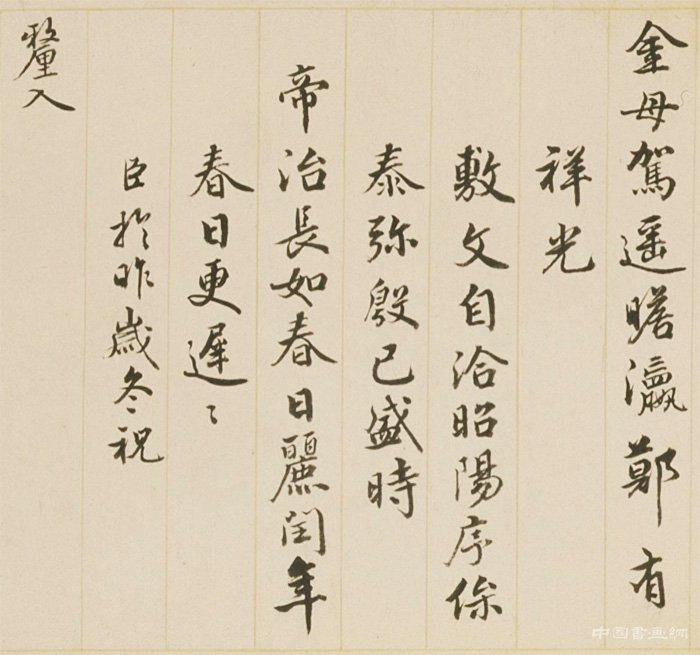 金母駕遥瞻瀛鄭有
祥光
敷文自洽昭陽序保
泰弥殷已盛時
帝治長如春日麗閏年
春日更遲〻
臣於昨歲冬祝
釐入
中国書画網